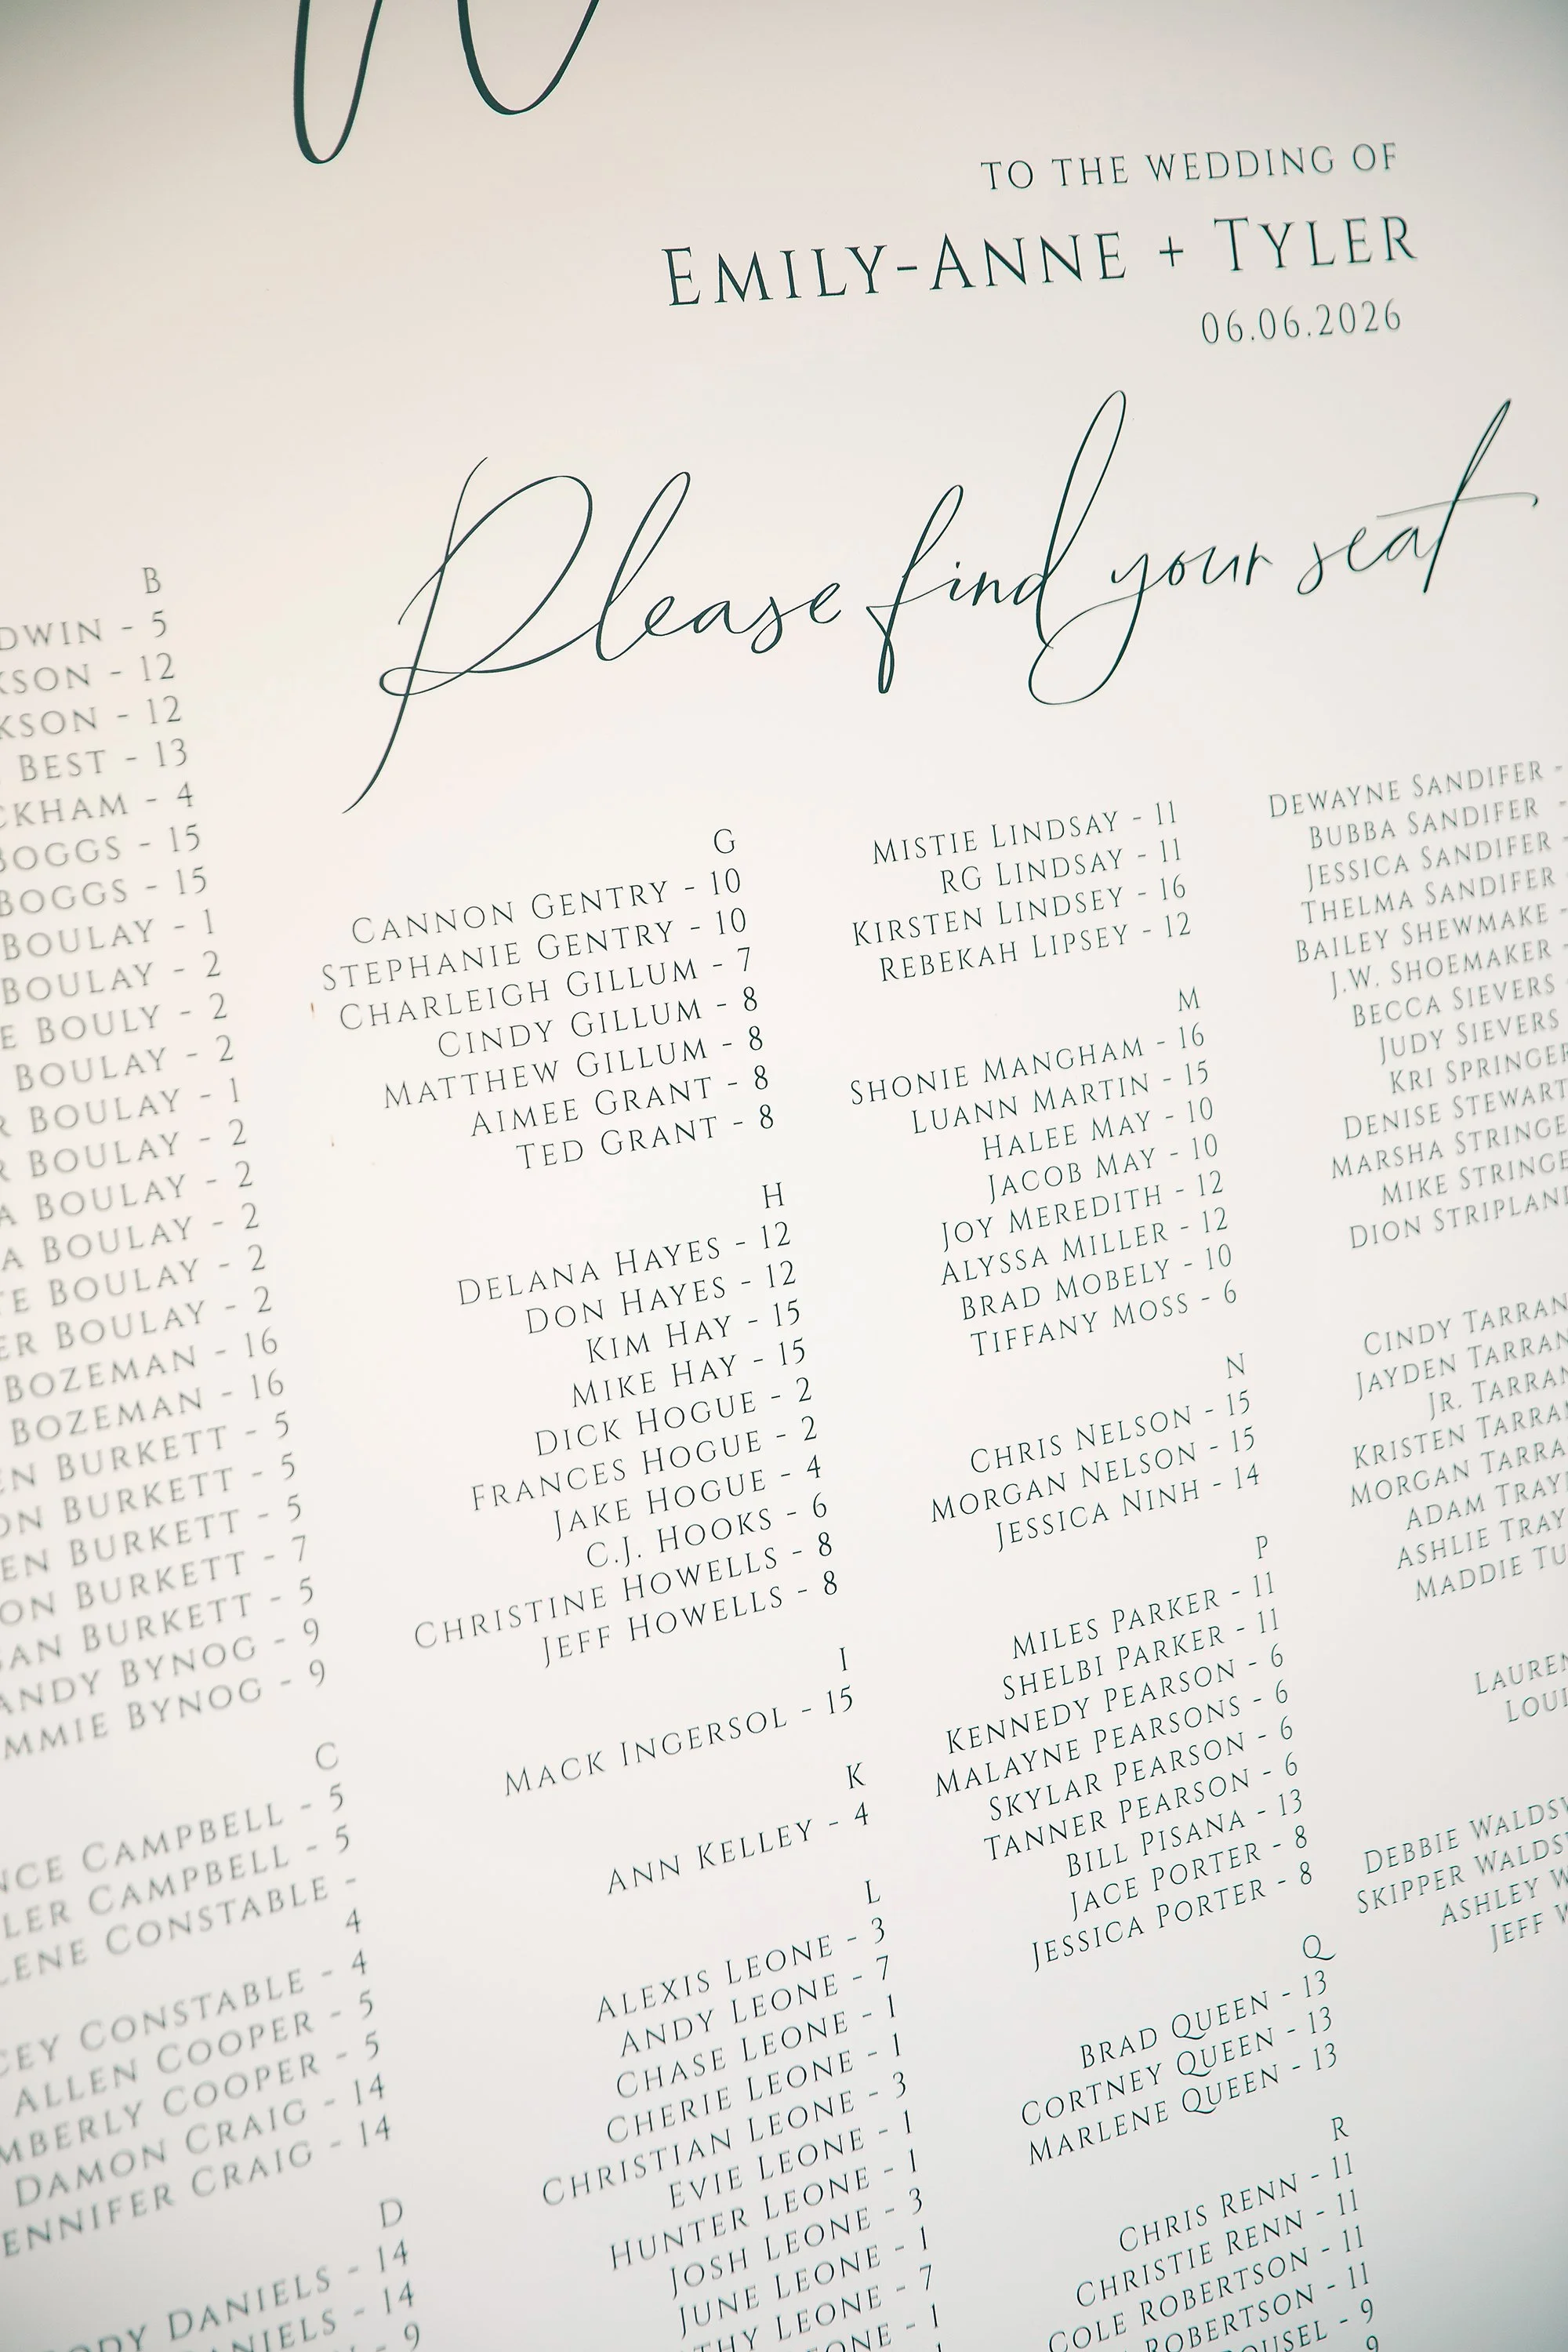 TO THE WEDDING OF
EMILY-ANNE + TYLER
06.06.2026
Please find your seat
B
- 5
- 12
- 12
BEST - 13
- 4
BOGGS - 15
BOGGS - 15
BOULAY - 1
BOULAY - 2
BOULY - 2
BOULAY - 2
BOULAY - 1
BOULAY - 2
BOULAY - 2
BOULAY - 2
BOULAY - 2
BOULAY - 2
BOZEMAN - 16
BOZEMAN - 16
BURKETT - 5
BURKETT - 5
BURKETT - 5
BURKETT - 7
BURKETT - 5
BYNOG - 9
BYNOG - 9
C
CAMPBELL - 5
CAMPBELL - 5
CONSTABLE -
4
CONSTABLE - 4
ALLEN COOPER - 5
COOPER - 5
DAMON CRAIG - 14
CRAIG - 14
D
DANIELS - 14
- 14
- 9
G
CANNON GENTRY - 10
STEPHANIE GENTRY - 10
CHARLEIGH GILLUM - 7
CINDY GILLUM - 8
MATTHEW GILLUM - 8
AIMEE GRANT - 8
TED GRANT - 8
H
DELANA HAYES - 12
DON HAYES - 12
KIM HAY - 15
MIKE HAY - 15
DICK HOGUE - 2
FRANCES HOGUE - 2
JAKE HOGUE - 4
C.J. HOOKS - 6
CHRISTINE HOWELLS - 8
JEFF HOWELLS - 8
I
MACK INGERSOL - 15
K
ANN KELLEY - 4
L
ALEXIS LEONE - 3
ANDY LEONE - 7
CHASE LEONE - 1
CHERIE LEONE - 1
CHRISTIAN LEONE - 3
EVIE LEONE - 1
HUNTER LEONE - 1
JOSH LEONE - 3
JUNE LEONE - 1
LEONE - 7
- 1
MISTIE LINDSAY - 11
RG LINDSAY - 11
KIRSTEN LINDSEY - 16
REBEKAH LIPSEY - 12
M
SHONIE MANGHAM - 16
LUANN MARTIN - 15
HALEE MAY - 10
JACOB MAY - 10
JOY MEREDITH - 12
ALYSSA MILLER - 12
BRAD MOBELY - 10
TIFFANY MOSS - 6
N
CHRIS NELSON - 15
MORGAN NELSON - 15
JESSICA NINH - 14
P
MILES PARKER - 11
SHELBI PARKER - 11
KENNEDY PEARSON - 6
MALAYNE PEARSONS - 6
SKYLAR PEARSON - 6
TANNER PEARSON - 6
BILL PISANA - 13
JACE PORTER - 8
JESSICA PORTER - 8
Q
BRAD QUEEN - 13
CORTNEY QUEEN - 13
MARLENE QUEEN - 13
R
CHRIS RENN - 11
CHRISTIE RENN - 11
COLE ROBERTSON - 11
ROBERTSON - 11
- 9
9
DEWAYNE SANDIFER -
BUBBA SANDIFER -
JESSICA SANDIFER -
THELMA SANDIFER
BAILEY SHEWMAKE -
J.W. SHOEMAKER -
BECCA SIEVERS
JUDY SIEVERS
KRI SPRINGER
DENISE STEWART
MARSHA
MIKE
DION
CINDY
JAYDEN
JR.
KRISTEN
MORGAN
ADAM
ASHLIE
MADDIE
LAUREN
DEBBIE
SKIPPER
ASHLEY
JEFF